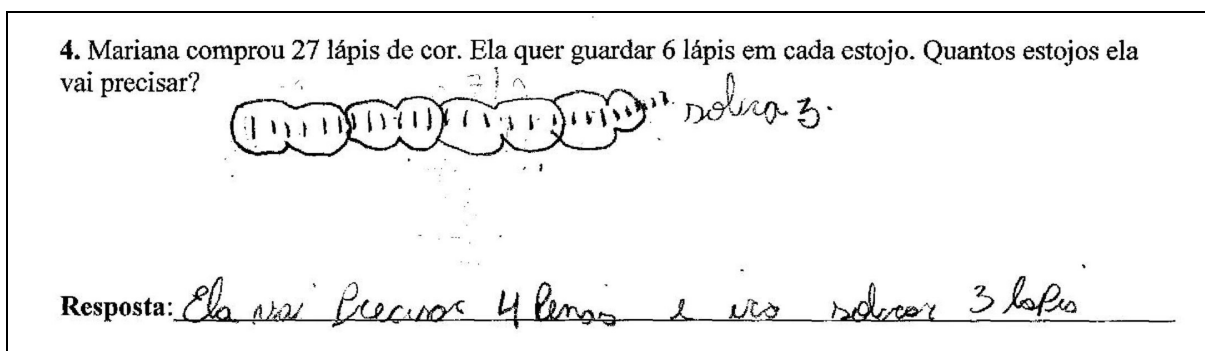 4. Mariana comprou 27 lápis de cor. Ela quer guardar 6 lápis em cada estojo. Quantos estojos ela
vai precisar?
sobra 3.
Resposta: Ela vai Precisar 4 e ira sobrar 3 lapis